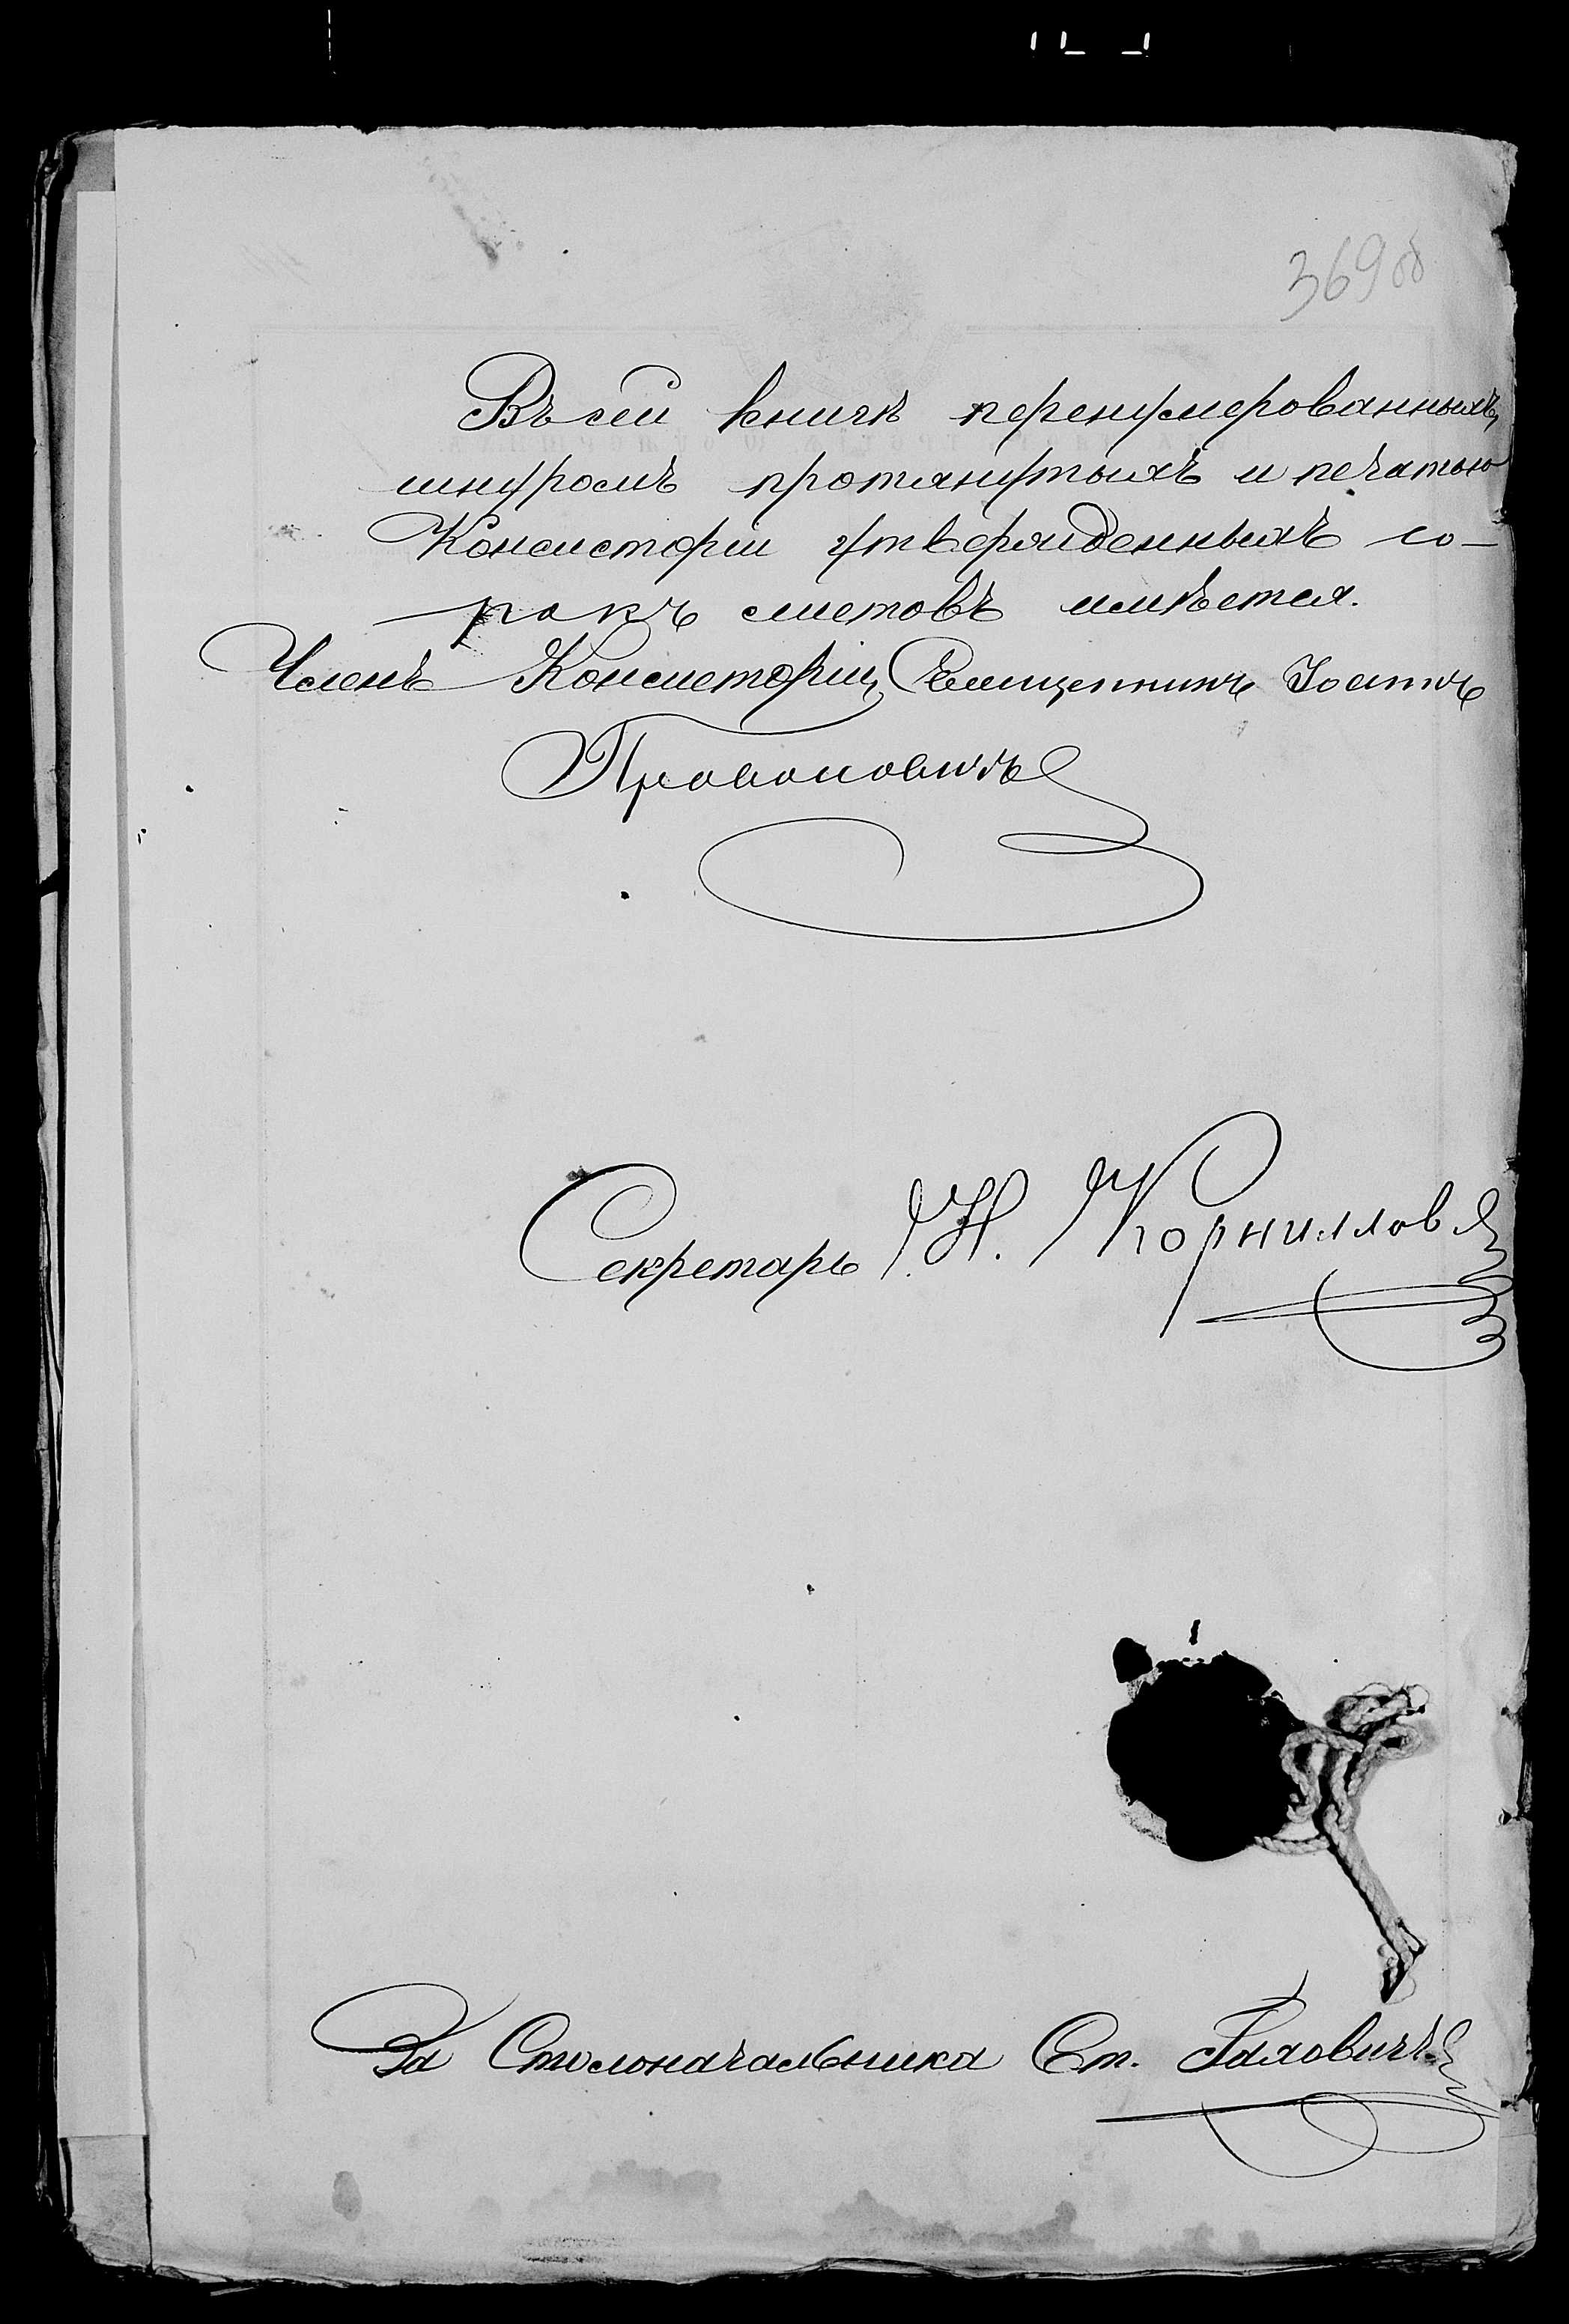 369 об
Въ сей книгѣ перенумерованныхъ,
шнуромъ протянутыхъ и печатью
Консисторіи утвержденныхъ со-
рокъ листовъ имѣется.
Членъ Консисторіи, Священникъ Іоаннъ
Секретарь Н. Корниллов
За Столоначальника Ст.